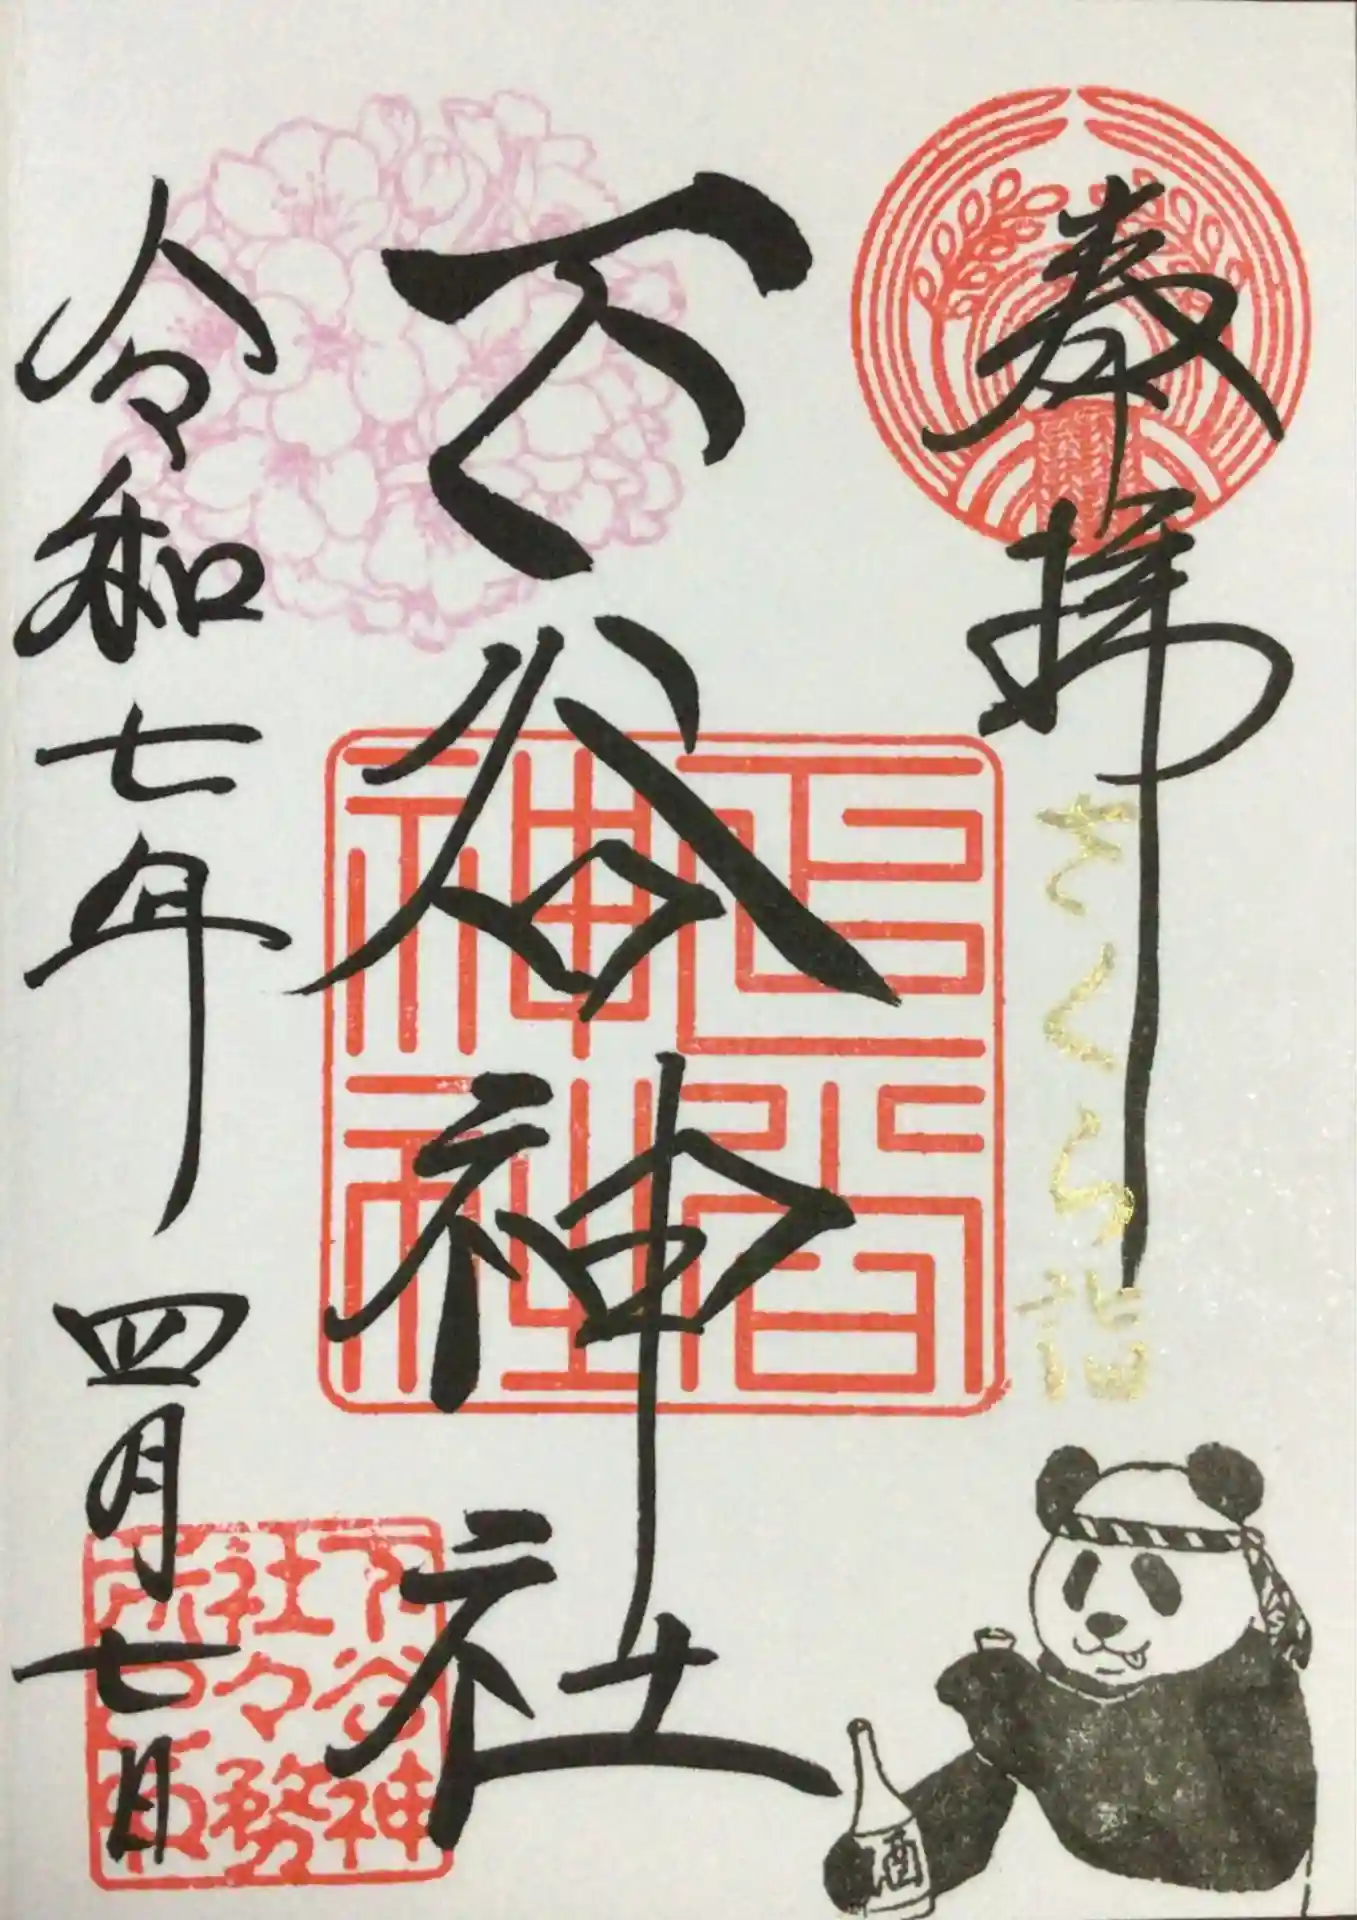 奉拝
さくら詣
下谷神社
正一位下谷神社
令和七年四月七日
下谷神社々務所之印
酒